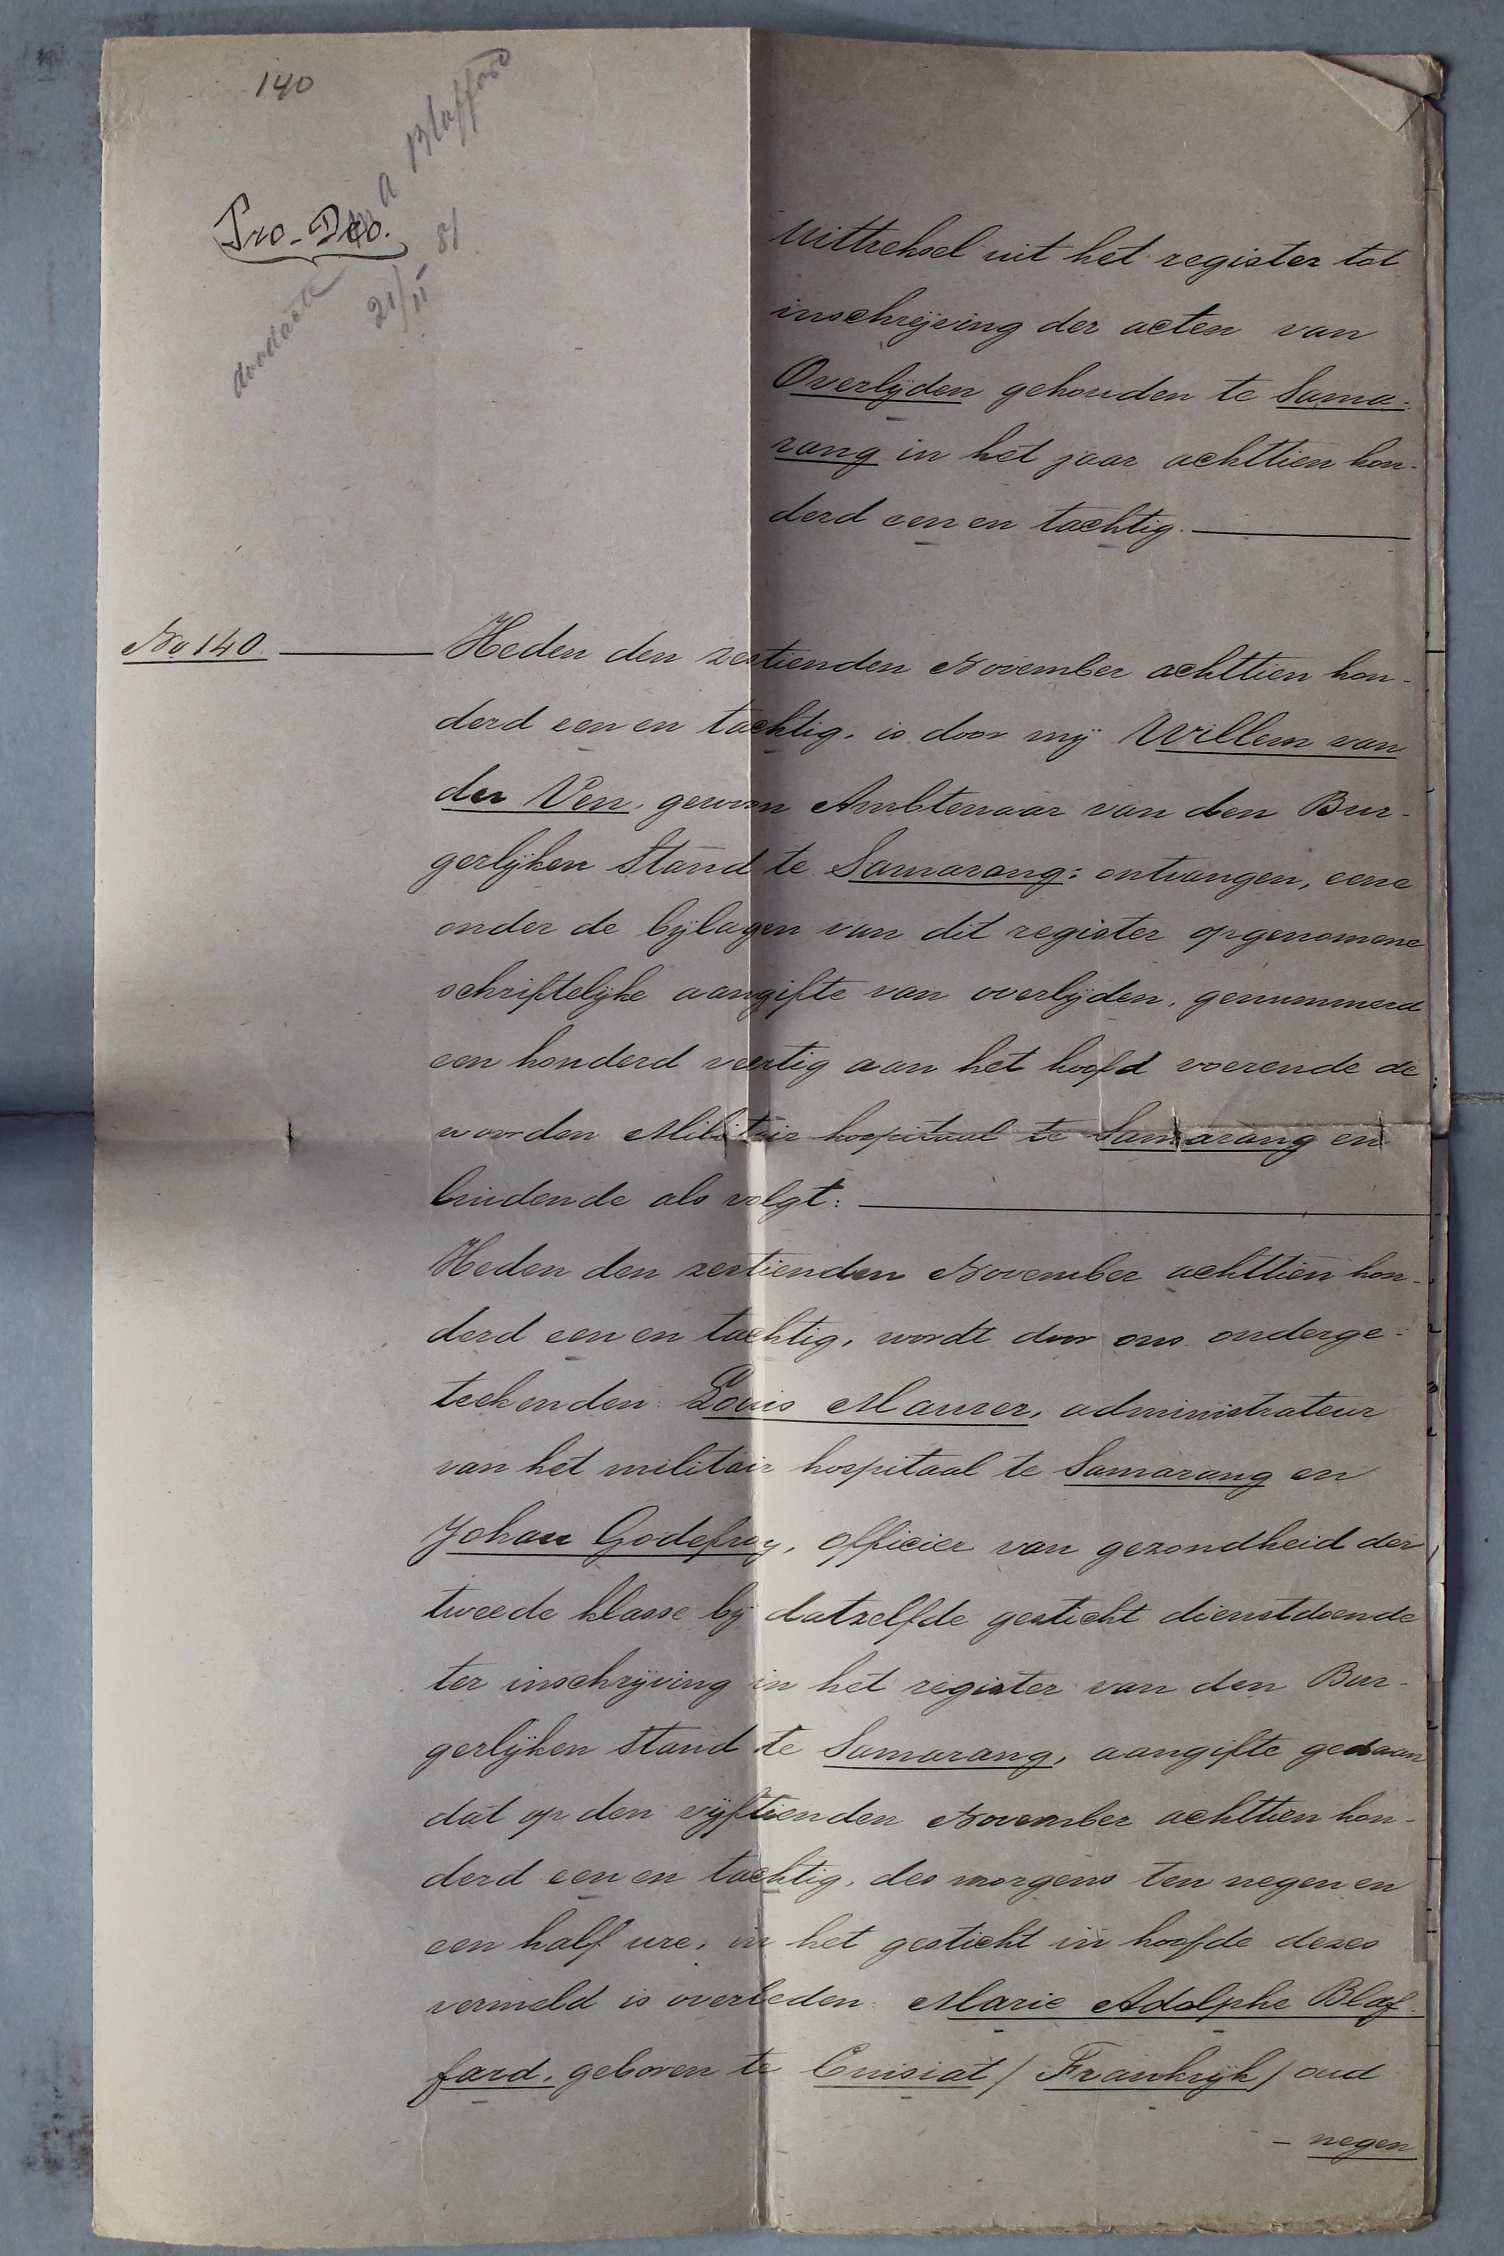 140
Pro-Deo.
doodacte
A Blaffard
21/11 81
Uittreksel uit het register tot
inschrijving der acten van
Overlijden gehouden te Sama-
rang in het jaar achttien hon-
derd een en tachtig.
No 140. Heden den zestienden November achttien hon-
derd een en tachtig, is door mij Willem van
der Ven, gewoon Ambtenaar van den Bur-
gerlijken Stand te Samarang: ontvangen, eene
onder de bijlagen van dit register opgenomene
schriftelijke aangifte van overlijden, genummerd
een honderd veertig aan het hoofd voerende de
woorden Militair hospitaal te Samarang en
luidende als volgt:
Heden den zestienden November achttien hon-
derd een en tachtig, wordt door ons onderge-
teekenden: Louis Maurer, administrateur
van het militair hospitaal te Samarang en
Johan Godefroy, officier van gezondheid der
tweede klasse bij datzelfde gesticht dienstdoende
ter inschrijving in het register van den Bur-
gerlijken Stand te Samarang, aangifte gedaan
dat op den vijftienden November achttien hon-
derd een en tachtig, des morgens ten negen en
een half ure, in het gesticht in hoofde dezes
vermeld is overleden: Marie Adolphe Blaf-
fard, geboren te Cuisiat / Frankrijk / oud
- negen